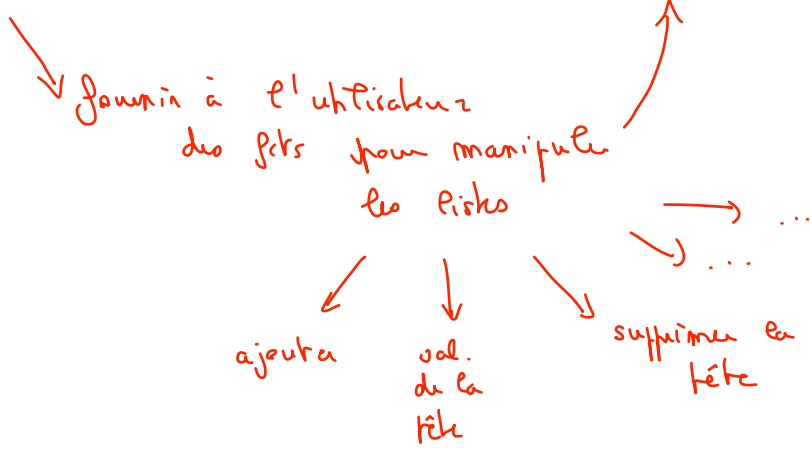 fournir à l'utilisateur
des fcts pour manipuler
les listes
...
...
ajouter
val.
de la
tête
supprimer la
tête